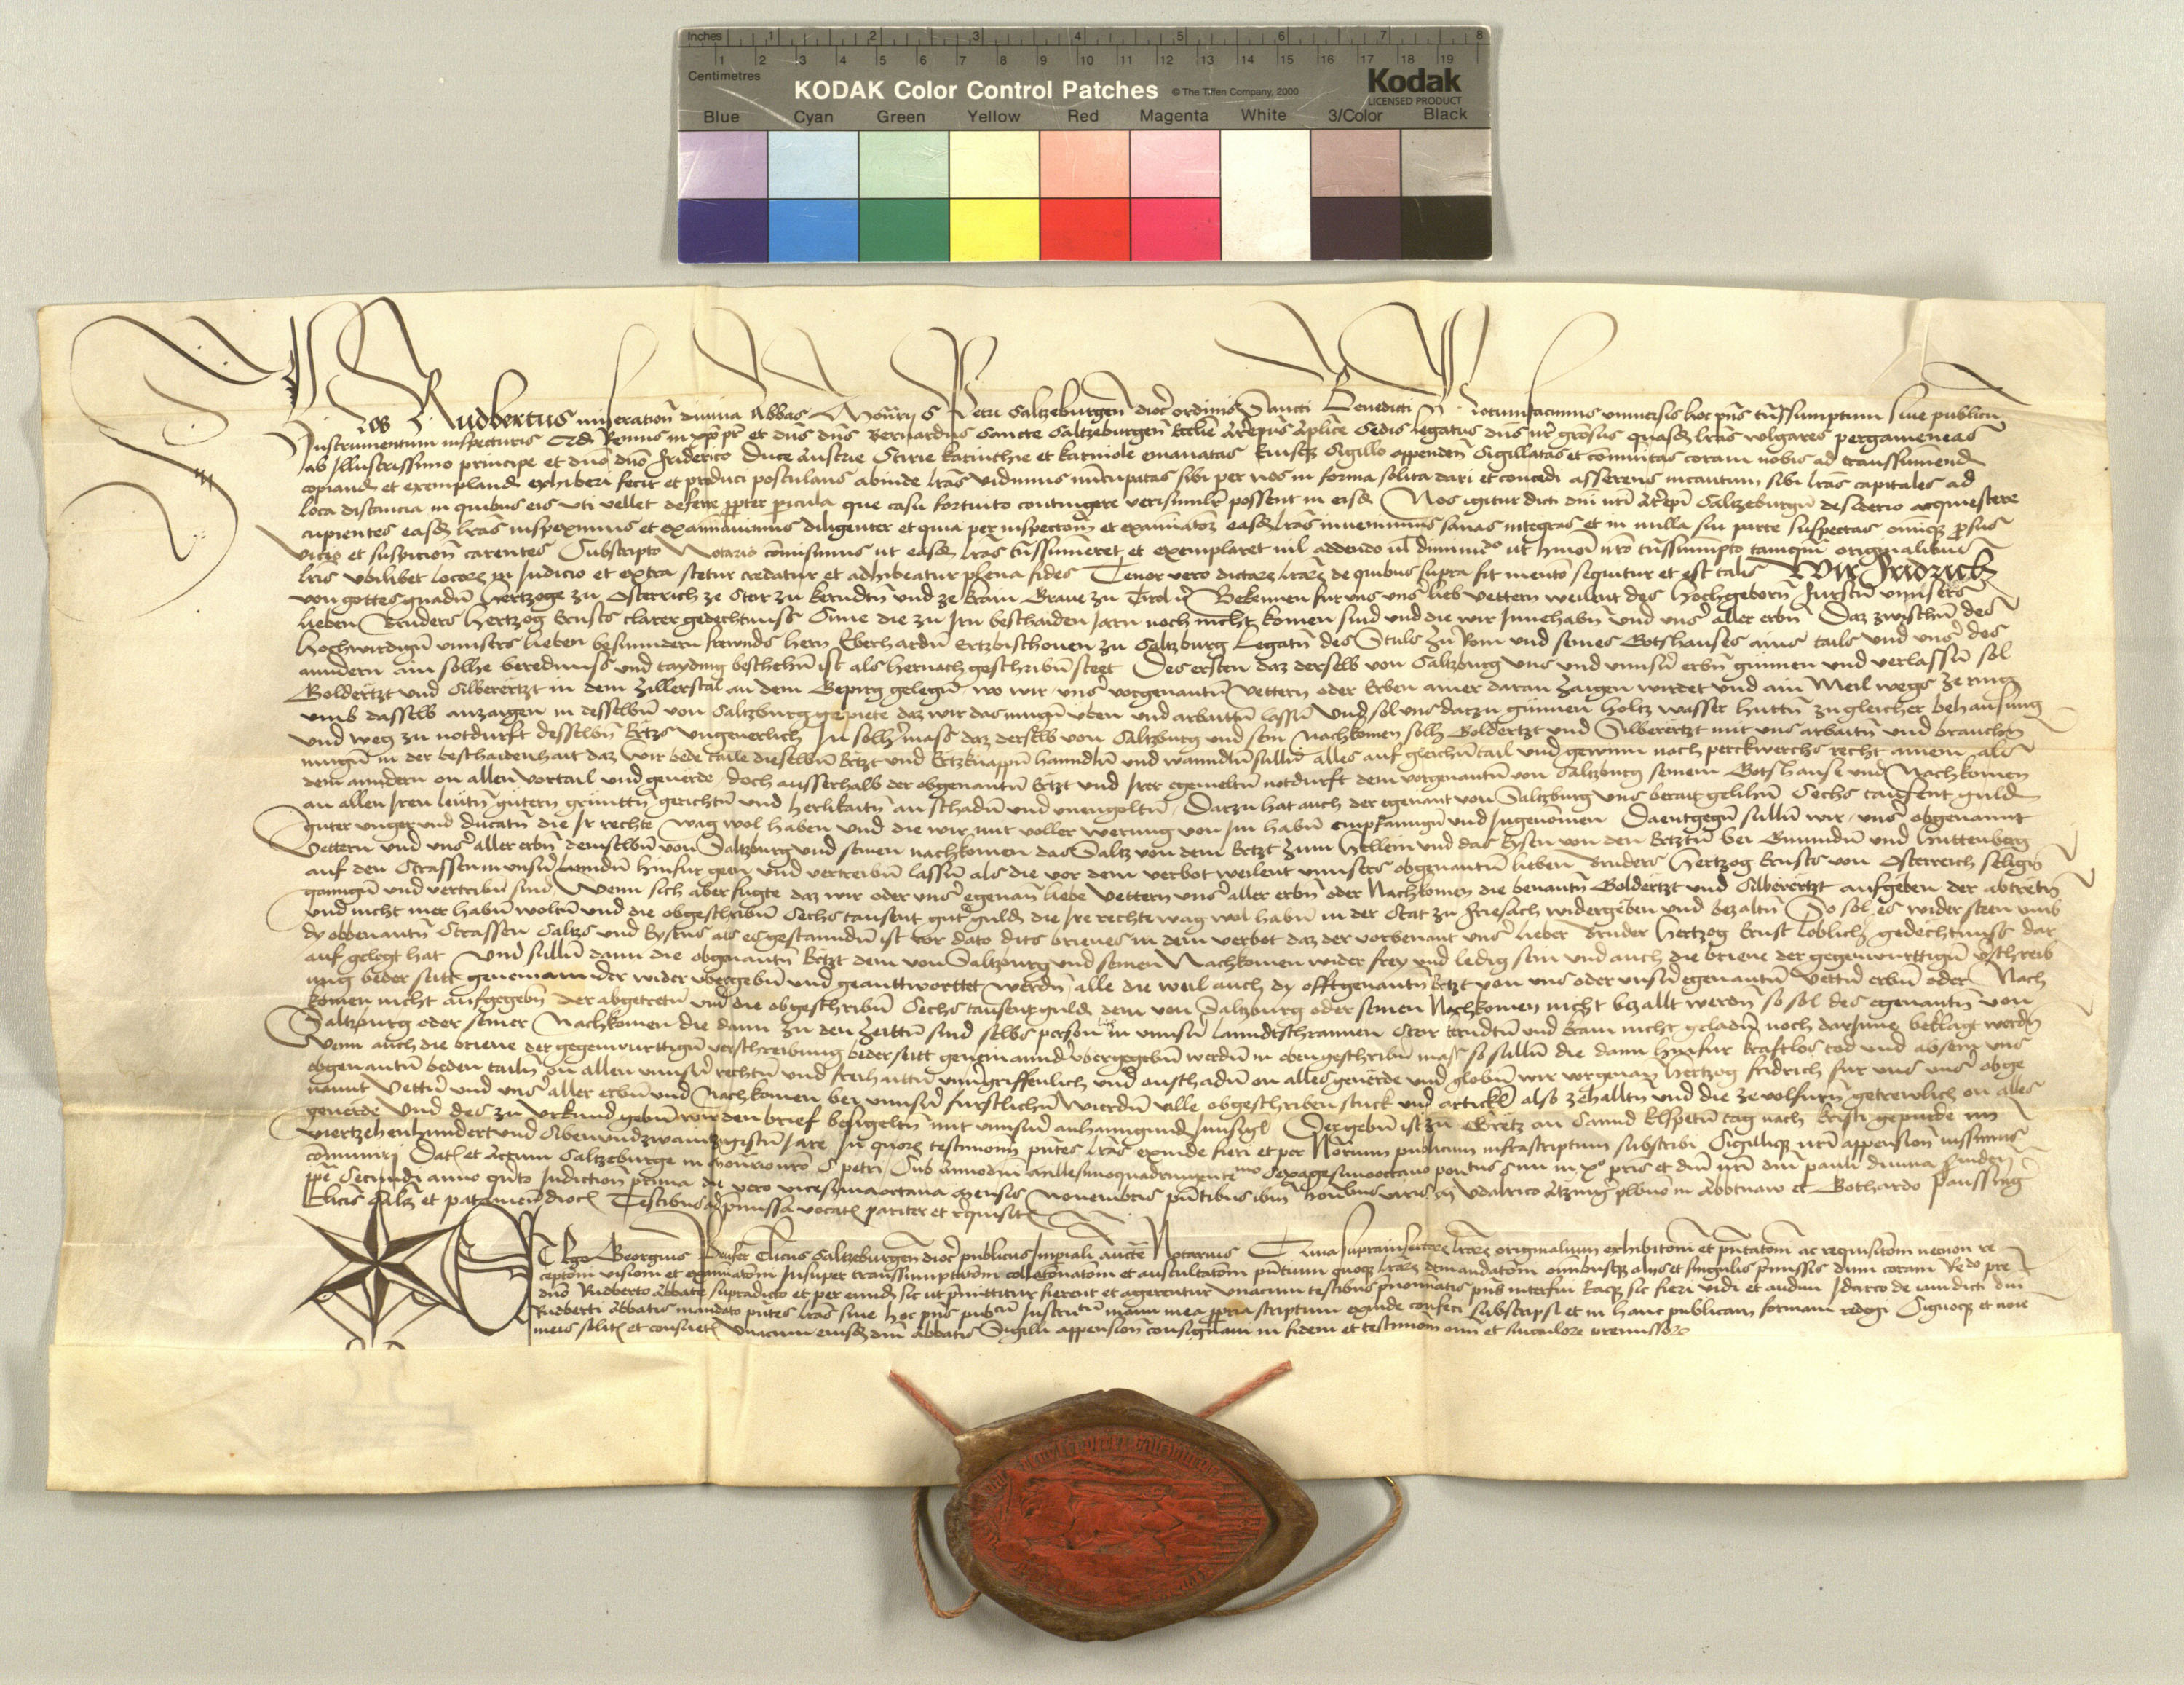 Inches 1 2 3 4 5 6 7 8
1 2 3 4 5 6 7 8 9 10 11 12 13 14 15 16 17 18 19
Centimetres
KODAK Color Control Patches © The Tiffen Company, 2000 Kodak
LICENSED PRODUCT
Blue Cyan Green Yellow Red Magenta White 3/Color Black
Nos Rudbertus miseration divina Abbas Monrij S Petri Saltzeburgen dioc ordinis Sancti Benedicti Notumfacimus universis hoc pns tnssumptum sive publicu
Instrumentum inspecturis Qd Remus in xpo pr et dns dns Bernardus Sancte Saltzeburgen Ecclie Arepus Aplice Sedis Legatus dns nr grosus quasd lras vulgares pergameneas
ab Illustrissimo principe et dno dno Friderico Duce Austrie Stirie Karinthie et Karniole emanatas Eiusq Sigillo appenden Sigillatas et communitas coram nobis ad transsumend
copiand et exempland exhiberi fecit et produci postulans abinde lras vidimus nucupatas sibi per nos in forma solita dari et concedi asserens incautum sibi lras capitales ad
loca distancia in quibus eis uti vellet deferre ppter picula que casu fortuito contingere verisimilr possent in eisd Nos igitur dicti dni nri Arepi Saltzeburgen desiderio acquiescere
cupientes easd lras inspeximus et examinavimus diligenter et quia per inspectom et examinatoz easd lras invenimus sanas integras et in nulla sui parte suspectas omiq psus
vicio et suspicion carentes Subscripto Notario comisimus ut easd lras tnssumeret et exemplaret nil addendo vl diminuedo ut hmoi nro tnssumpto tamqm originalibus
lris ubilibet locorz in Judicio et extra stetur credatur et adhibeatur plena fides Tenor vero dictarz lrarz de quibus supra fit mento sequitur et est talis Wir Fridrich
von gottes gnadn Hertzoge zu Osterrich ze Steir zu kerndtn und ze krain Grave zu Tirol Bekennen fur uns unsr lieb vettern weilent des Hochgeborn Fursten unnsers
lieben Bruders Hertzog Ernsts clarer gedechtnuss Sune die zu Irn beschaiden Jarn noch nicht komen sind und die wir Innehabn und unsr aller erbn Daz zwischn des
Hochwirdign unnsers lieben besunndern frewnds hern Eberhardn Ertzbischoven zu Saltzburg Legatn des Stuls zu Rom und seines Gotshauses ains tails und unsr des
anndern ain solhe berednuss und tayding beschehn ist als hernach geschribn steet Des ersten daz derselb von Saltzburg uns und unnsrn erbn gunnen und verlassn sol
Goldertzt und Silberertzt in dem Zillerstal an dem Gepirg gelegn wo wir unsr vorgenantn vettern oder Erben ainer daran zaigen wirdet und ain Meil wegs ze ring
umb dasselb anzaigen in desselbn von Saltzburg gepiete daz wir das mugn uben und arbaittn lassn Und sol uns darzu gunnen Holtz wasser huttn zu gleicher behausung
und weg zu notdurft desselbn Ertzs ungeverlich In solher mass daz derselb von Saltzburg und sein Nachkomen solh Goldertzt und Silberertzt mit uns arbaitn und brauchn
mugn in der beschaidenhait daz wir bede taile dieselbn Ertzt und Ertzknappn hanndln und wanndln sulln alles auf gleichn tail und gewinn nach perckwerchs recht ainem als
dem anndern on allen vortail und geverde doch ausserhalb der obgenantn Ertzt und Irer egemeltn notdurft dem vorgenantn von Saltzburg seinem Gotshause und Nachkomen
an allen Iren leutn gutern gruntn gerichtn und herlikaitn an schadn und unengoltn Darzu hat auch der egenant von Saltzburg uns berait gelihn Sechs tausent guld
guter unger und ducatn die Ir rechte wag wol haben und die wir mit voller werung von Im habn empfanngn und Ingenomen Daentgegn sulln wir unsr obgenannt
Vettern und unsr aller erbn demselbn von Saltzburg und seinen nachkomen das Saltz von dem Ertzt zum Hellein und das Eysen von den Ertztn bei Gmundn und Huttenberg
auf den Strassen in unsrn lanndn hinfur geen und vertreibn lassn als die vor dem verbot weilent unnsers obgenantn lieben Bruders Hertzog Ernsts von Osterreich selign
ganngn und vertribn sind Wenn sich aber fugte daz wir oder unsr egenan liebe vettern unsr aller erbn oder Nachkomen die benantn Goldertzt und Silberertzt aufgeben der abtretn
und nicht mer habn woltn und die obgeschribn Sechs tausent gutr guld die Ire rechte wag wol habn in der Stat zu Friesach widergeben und bezaltn So sol es wider steen umb
dy obbenantn Strassen Saltzs und Eysens als es gestanndn ist vor dato dits brieves in dem verbot daz der vorbenant unsr lieber Bruder Hertzog Ernst loblich gedechtnuss dar
auf gelegt hat Und sulln dann die obgenantn Ertzt dem von Saltzburg und seinen Nachkomen wider frey und ledig sein und auch die brieve der gegenwurttign vschreib
ung beder seitt geneinannder wider ubergebn und geanttworttet werdn alle die weil auch dy offtgenantn Ertzt von uns oder unsrn egenantn vettrn erbn oder Nach
komen nicht aufgegebn der abgetretn und die obgeschribn Sechs tausent guld dem von Saltzburg oder seinen Nachkomen nicht bezallt werdn so sol des egenantn von
Saltzburg oder seiner Nachkomen die dann zu den zeittn sind selbs person in unnsrn Lanndtschrannen Steir kerndtn und krain nicht geladn noch darInne beklagt werdn
Wenn auch die brieve der gegenwurttign verschreibung beder seitt geneinannd ubergegebn werdn in obengeschribn mass so sulln die dann hinfur kraftlos tod und absein uns
obgenantn beden tailn on allen unnsrn rechtn und freihaittn unngriffenlich und onschadn on alles geverde und globn wir vorgenan Hertzog Fridrich fur uns unsr obge
nannt vettrn und unsr aller erbn und Nachkomen bei unnsrn furstlichn wierdn alle obgeschriben stuck und artickl also zehalltn und die ze volfurn getrewlich on alles
geverde Und des zu urkund gebn wir den brief besigeltn mit unnsrm anhanngundn Innsigl Der gebn ist zu Gretz an Sannd Elspetn tag nach kristi gepurde im
viertzehenhundert und Sibenundzwaintzigistn Jare In quorz testimonim pntes lras exinde fieri et per Notrium publicum infrascriptum subscribi Sigilliq nri appension iussimus
communiri Dat et Actum Saltzeburge in Monrio nro S Petri Sub Annodni Millesimoquadringente mo Sexagesimooctavo pontus Smi in xo pris et dni nri dni Pauli divina providen
ppe Secundi anno quto Indiction prima die vero vicesimaoctava Mensis Novembris pntibus ibm honbus viris Udalrico Atzinger plbno in Abbtnaw et Gothardo Paussing
Clicis Salz et pataviend dioc Testibus ad pmissa vocat pariter et requisit
Et Ego Georgius Clicus Saltzeburgen dioc publicus Impiali aucte Notarius Quia suprainsertarz lrarz originalium exhibitom et pntatom ac requisitom necnon re
ceptom visiom et examinatom Insuper transsumptatom colletionatom et auscultatom pntium quoq lrarz demandatom omnibusq aliis et singulis pmissis dum coram Redo pre
dno Rudberto Abbate supradicto et per eund sic ut pmittitur fierent et agerentur unacum testibus pnominatis pns interfui Eaq sic fieri vidi et audivi Idcirco de iamdicti dni
Rudberti Abbatis mandato pntes lras sive hoc pns pubcu Instrutu manu mea ppria scriptum exinde confeci Subscripsi et in hanc publicam formam redegi Signoq et noie
meis solit et consuet unacum eiusd dni abbatis Sigilli appension consignavi in fidem et testimom oim et singulorz premissorz